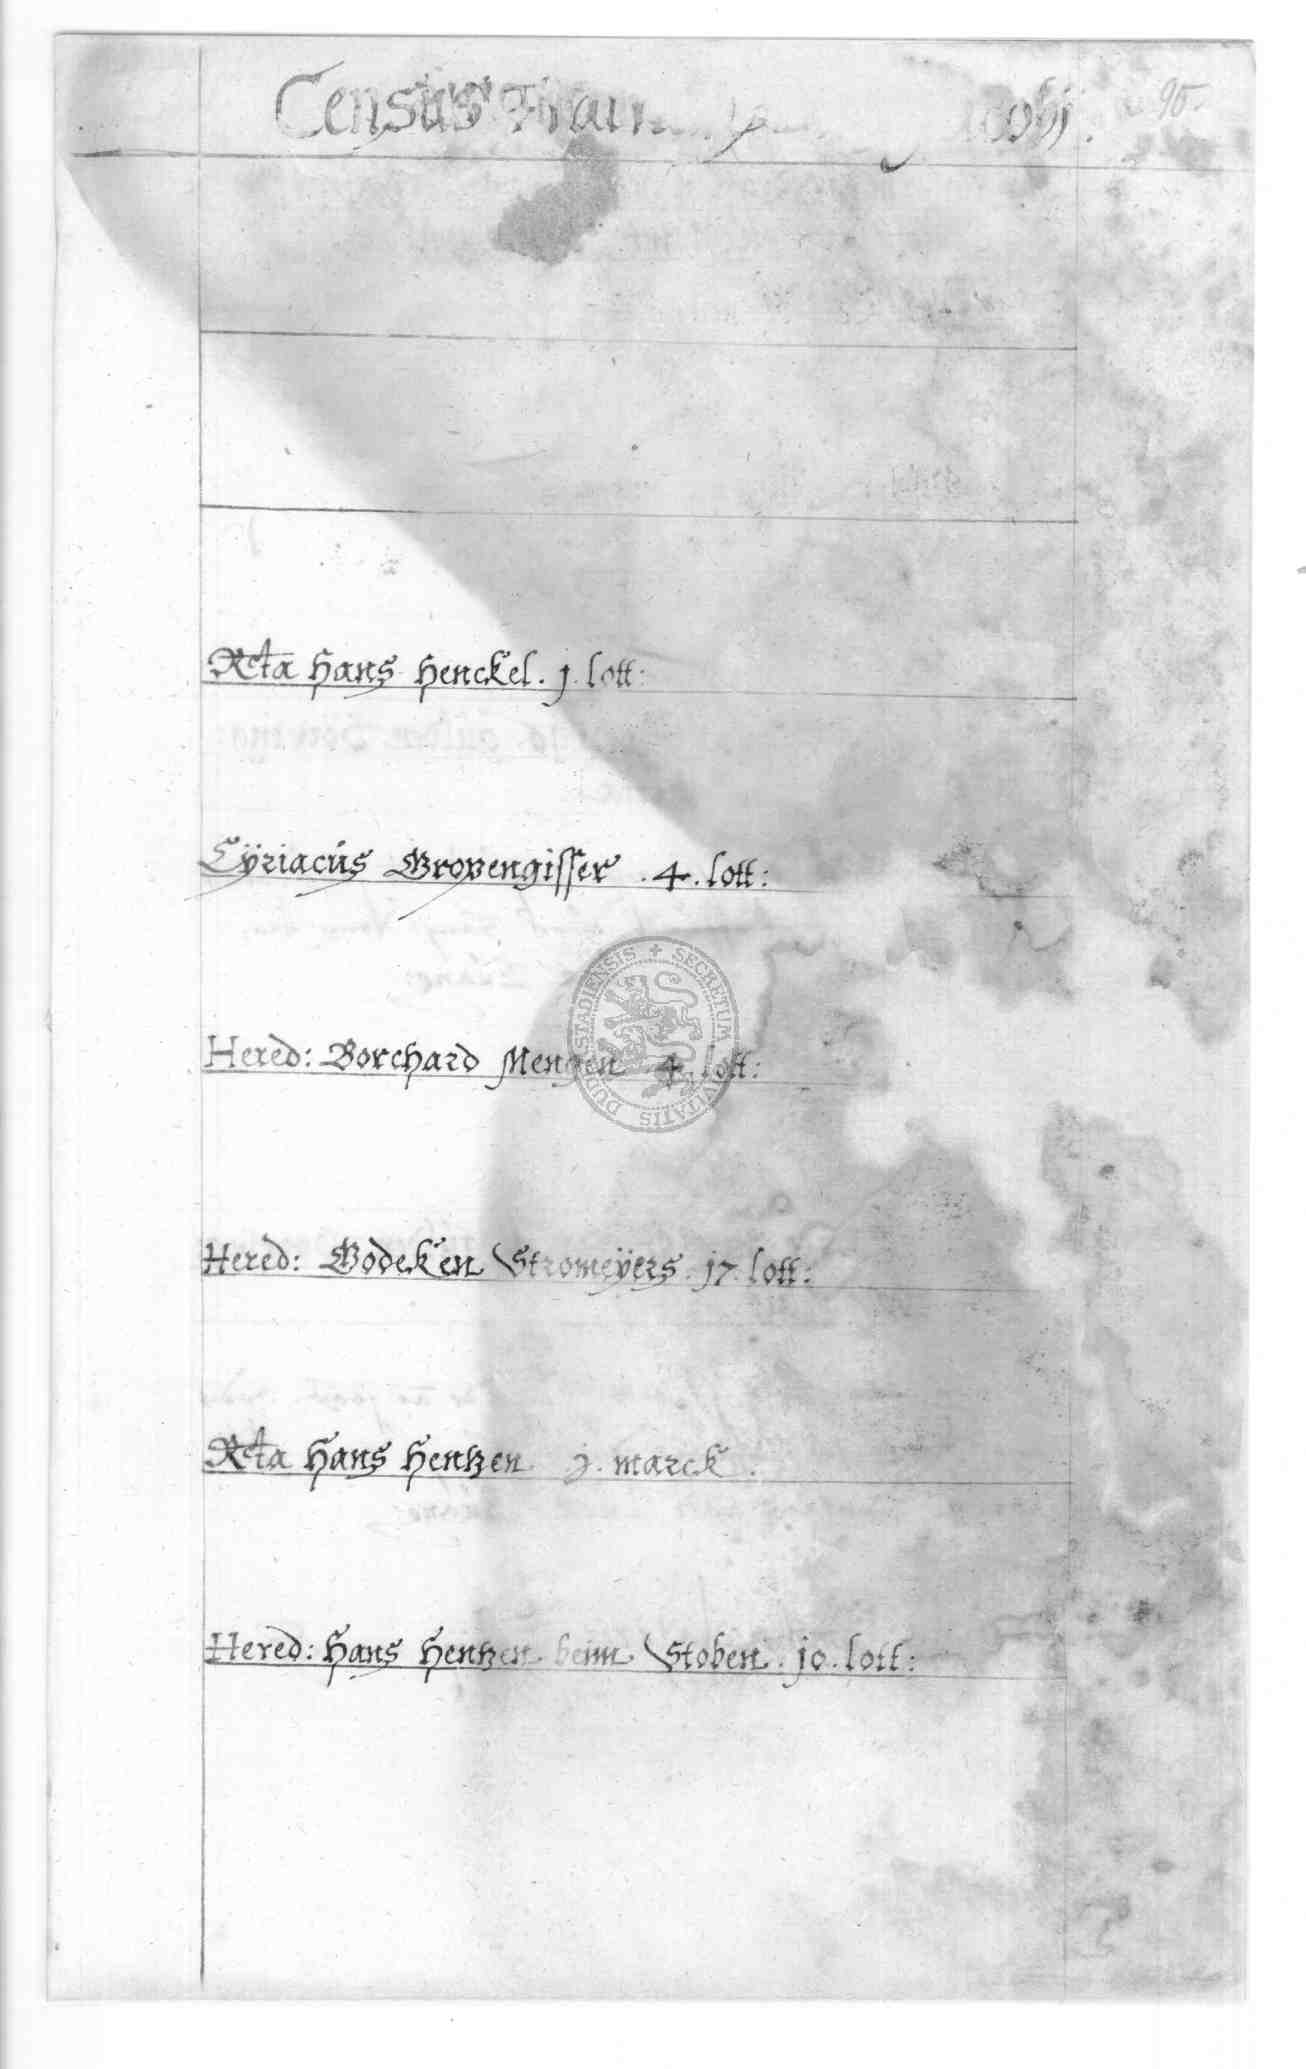 Census 95.
Rcta Hans Henckel . j . lott :
Cÿriacus Gropengisser . 4 . lott :
Hered : Borchard Mengen 4 . lott :
Hered : Bodeken Stromeÿers . j7 . lott :
Rcta Hans Hentzen j . marck .
Hered : Hans Hentzen beim Stoben . jo . lott :
SECRETUM CIVITATIS DUDERSTADIENSIS